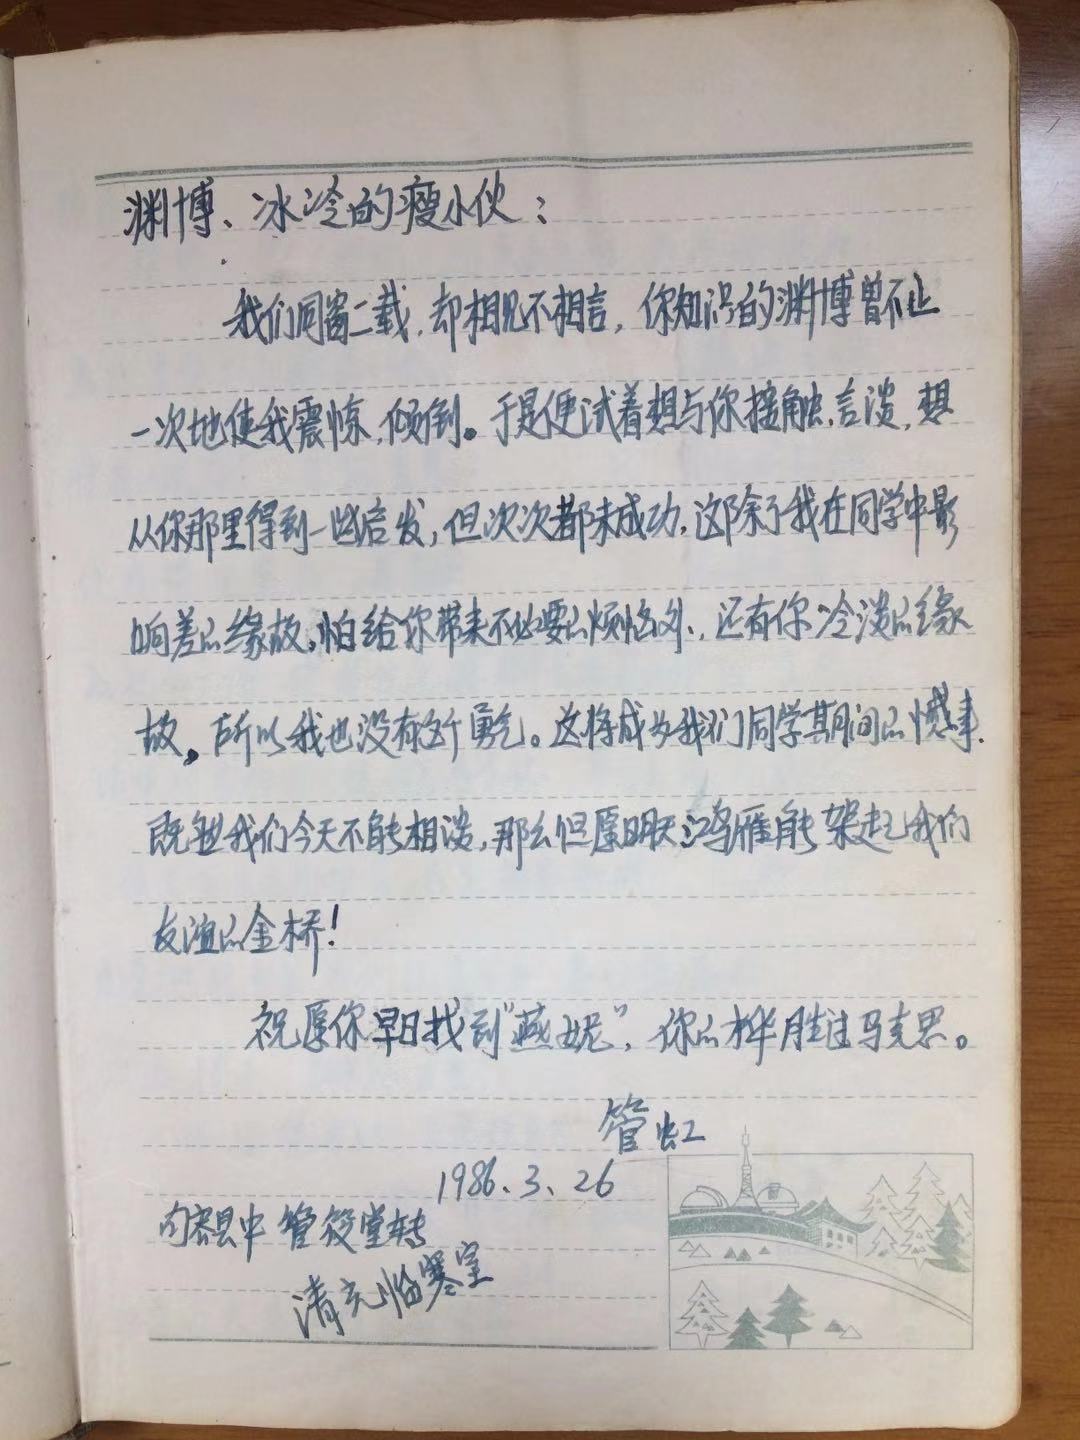 渊博、冰冷的瘦小伙：
我们同窗二载，却相见不相言，你知识的渊博曾不止
一次地使我震惊，倾倒。于是便试着想与你接触，言谈，想
从你那里得到一些启发，但次次都未成功，这除了我在同学中影
响差的缘故，怕给你带来不必要的烦恼外，还有你冷淡的缘
故。所以我也没有这个勇气。这将成为我们同学其间的憾事。
既然我们今天不能相谈，那么但愿明天鸿雁能架起我们
友谊的金桥！
祝愿你早日找到“燕妮”，你的才华胜过马克思。
管虹
1986.3.26
内县中 管发堂转
清光临寒室